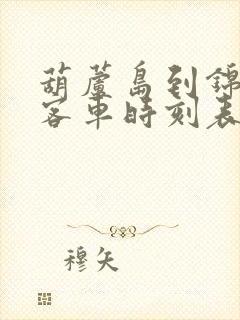 葫蘆島到錦
客車時刻表
穆矢